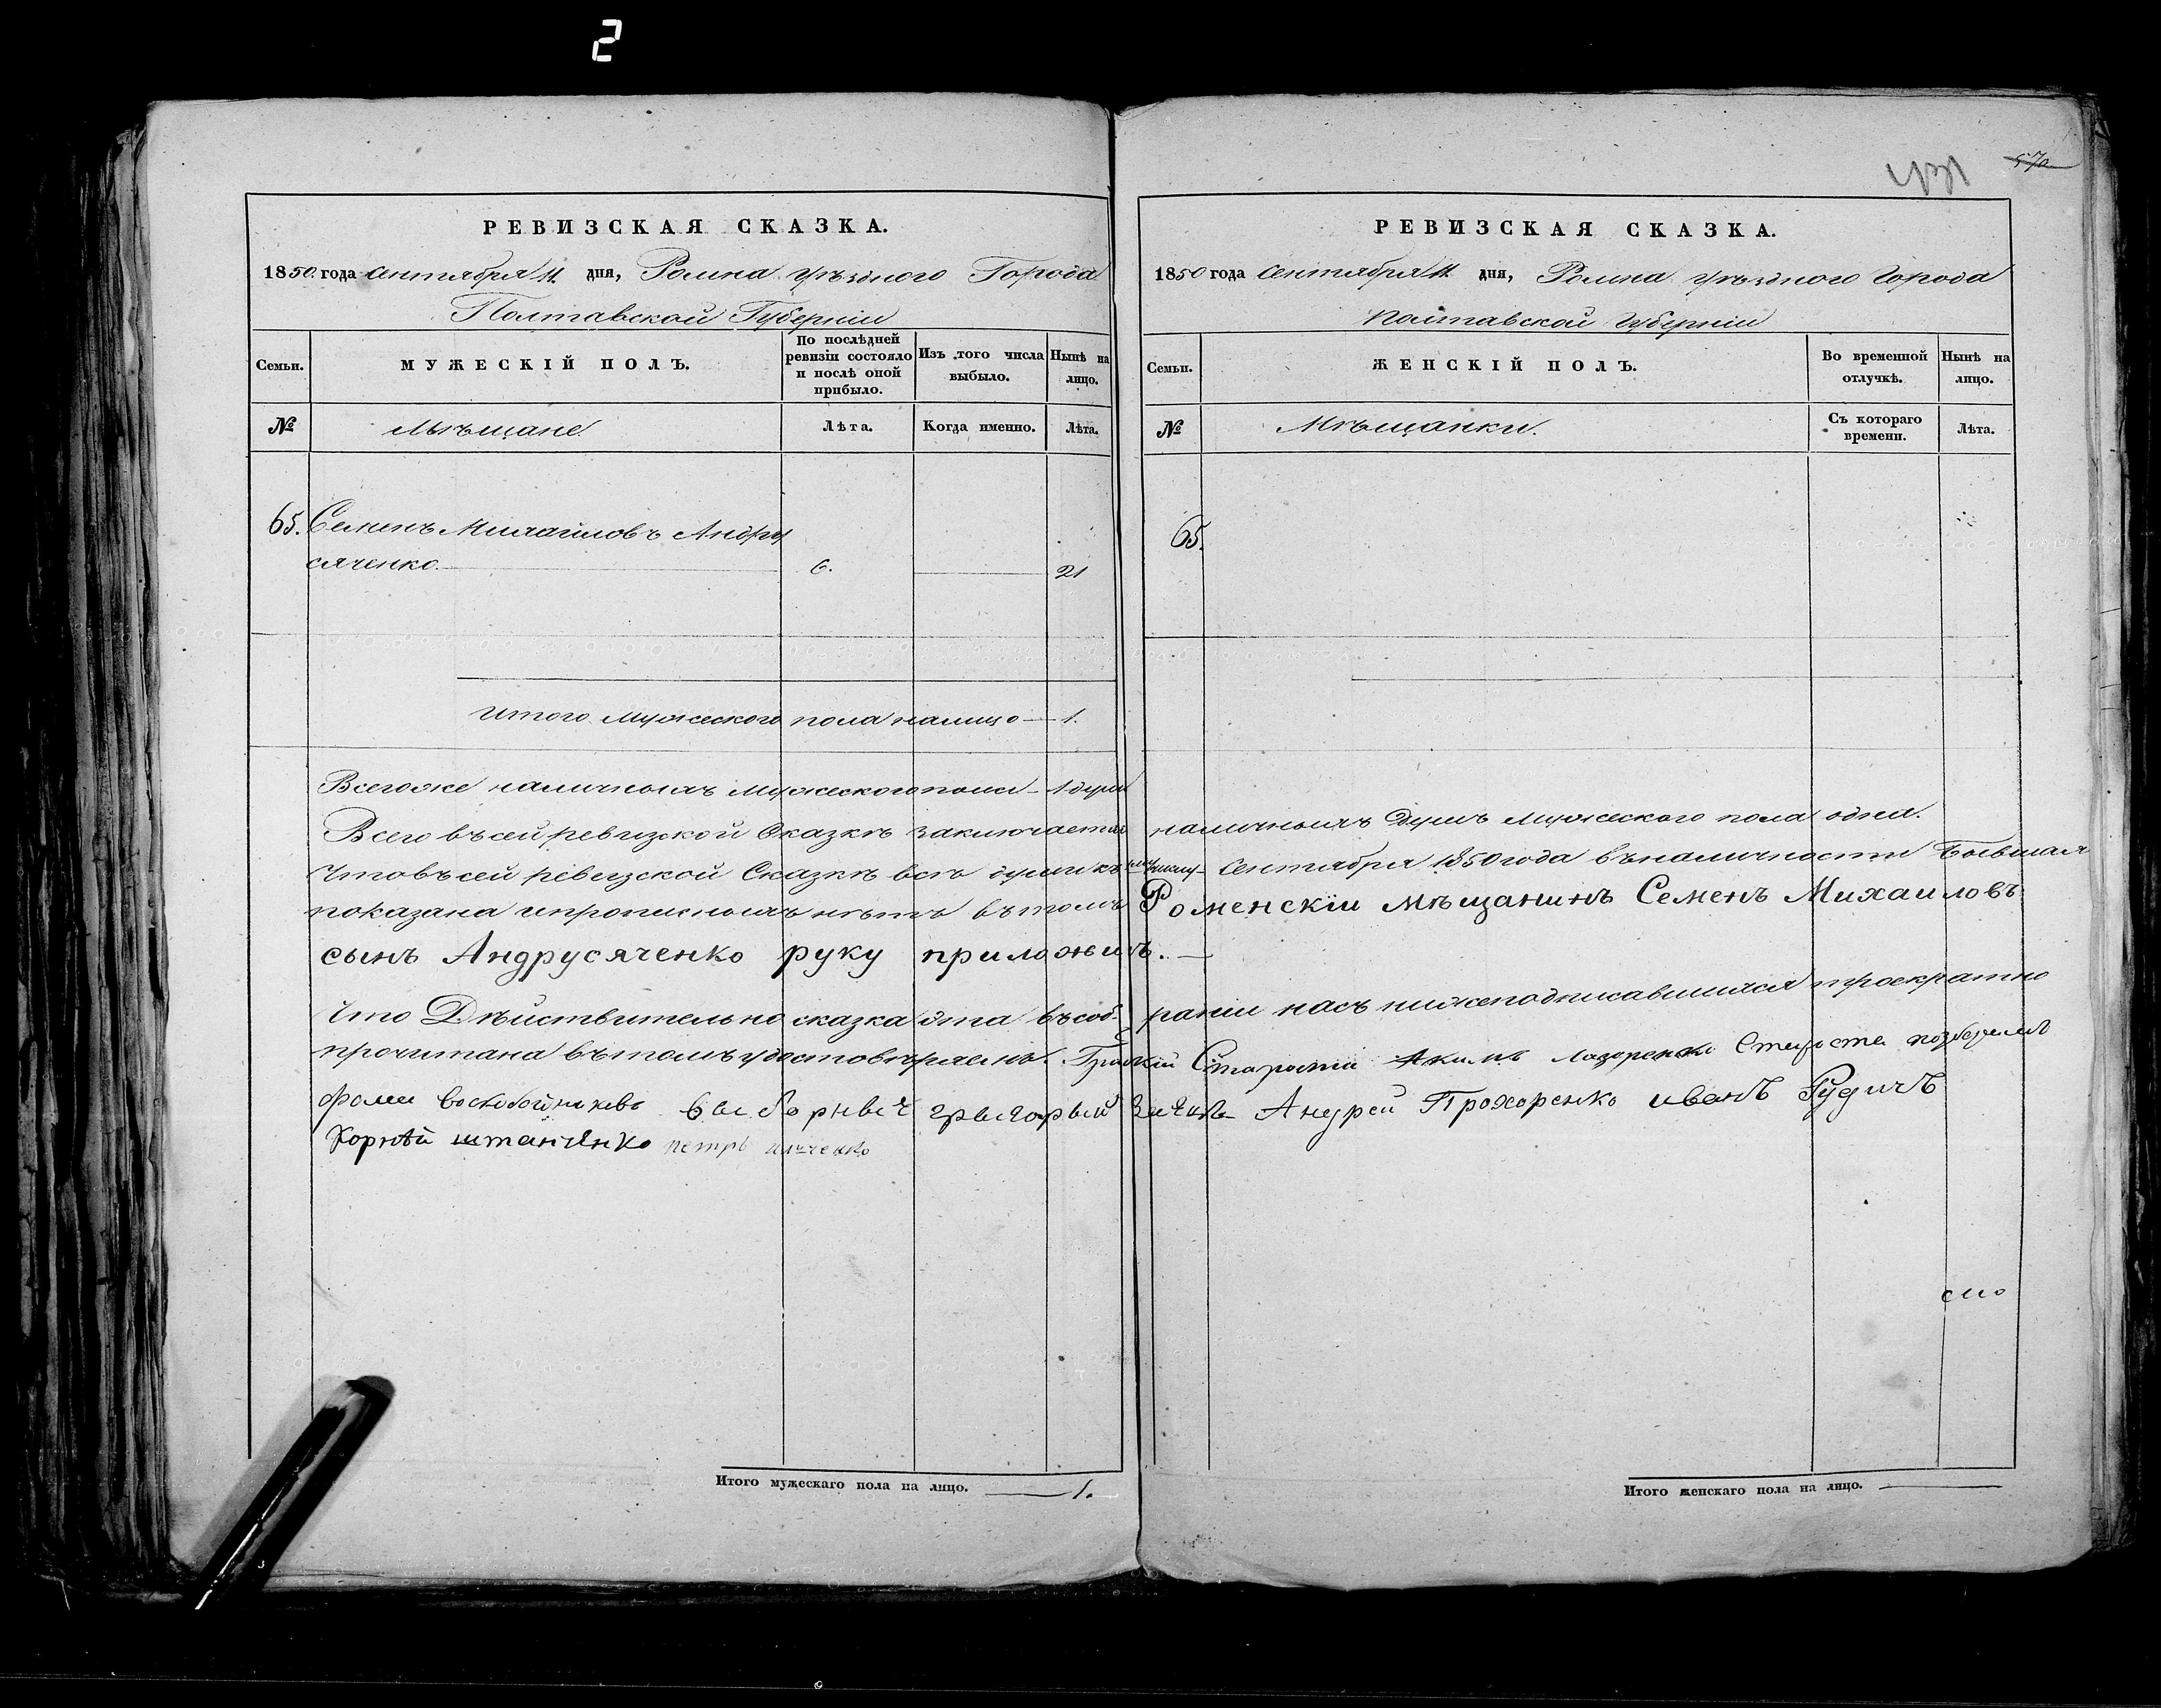 2
570
РЕВИЗСКАЯ СКАЗКА.
1850 года Сентября 11. дня, Ромна уѣзднаго Города
Полтавской Губерніи
Семьи.
МУЖЕСКІЙ ПОЛЪ.
По послѣдней ревизіи состояло и послѣ оной прибыло.
Изъ того числа выбыло.
Нынѣ на лицо.
№
Мѣщане
Лѣта.
Когда именно.
Лѣта.
65. Семенъ Михайловъ Андру
сяченко. 6. 21
Итого Мужеского пола налицо — 1.
Всегоже наличныхъ Мужескогопола — 1 душа
РЕВИЗСКАЯ СКАЗКА.
1850 года Сентября 11 дня, Ромна уѣзднаго Города
Полтавской Губерніи
Семьи.
ЖЕНСКІЙ ПОЛЪ.
Во временной отлучкѣ.
Нынѣ на лицо.
№
Мѣщанки.
Съ котораго времени.
Лѣта.
65.
Всего въсей ревизкой Сказкѣ заключается наличныхъ Душъ мужеского пола одна.
Чтовъсей ревизской Сказкѣ всѣ души къ Сентября 1850 года въналичности Бывшая
показана ипрописныхъ нѣтъ вътомъ Роменскіи мѣщанинъ Семенъ Михаиловъ
сынъ Андрусяченко руку приложилъ. —
Что Дѣйствительно сказка эта въсоб-раніи насъ нижеподписавшихся троекратно
прочитана вътомъ удостовѣряемъ. Староста Акимъ Лазоренко Староста
Фома воскобойниковъ выборныеч грыгорый Андрей Прохоренко иванЪ РудичЪ
Корнѣй штанянко петръ
сто
Итого мужескаго пола на лицо. — 1.
Итого женскаго пола на лицо. —